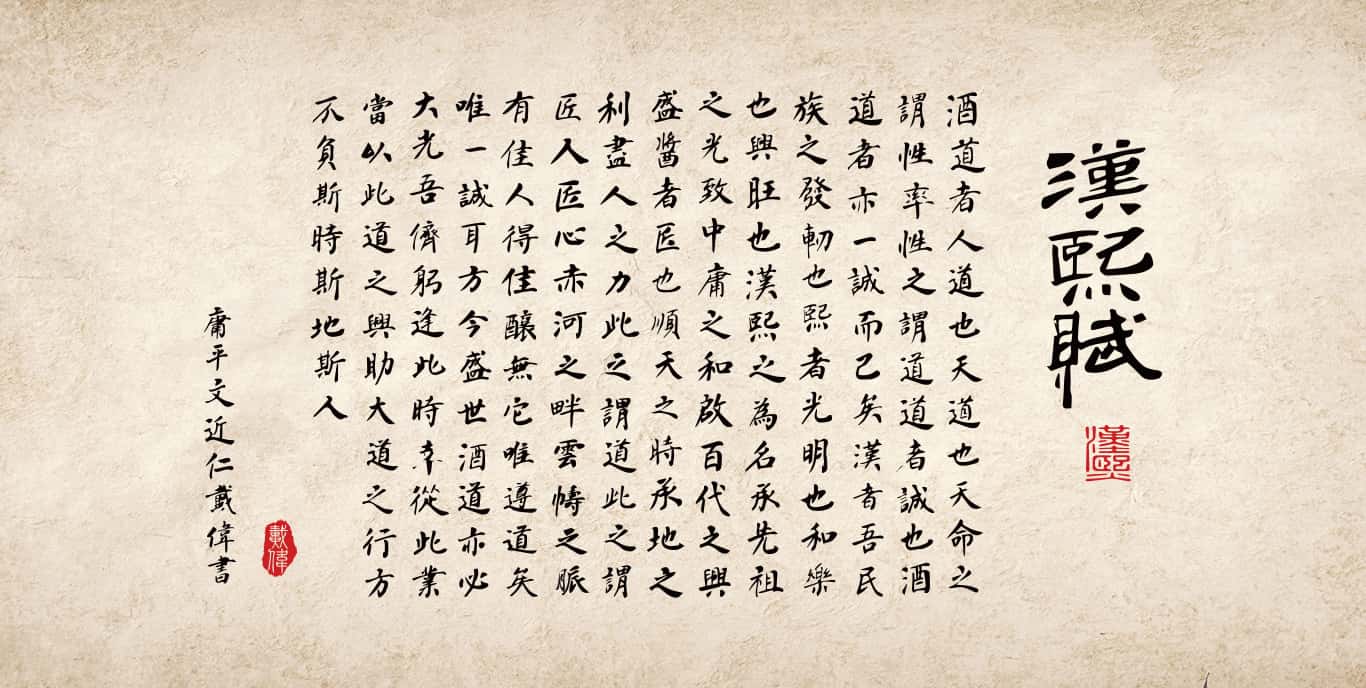 漢熙賦
漢熙
酒道者人道也天道也天命之
謂性率性之謂道道者誠也酒
道者亦一誠而已矣漢者吾民
族之發軔也熙者光明也和樂
也興旺也漢熙之為名承先祖
之光致中庸之和啟百代之興
盛醬者匠也順天之時承地之
利盡人之力此之謂道此之謂
匠人匠心赤河之畔雲幬之脈
有佳人得佳釀無它唯遵道矣
唯一誠耳方今盛世酒道亦必
大光吾儕躬逢此時幸從此業
當以此道之興助大道之行方
不負斯時斯地斯人
庸平文近仁戴偉書
戴偉